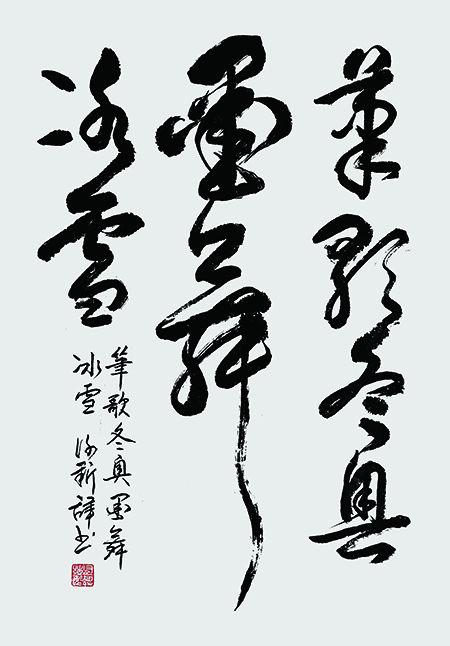 筆歌冬奥
墨舞
冰雪
筆歌冬奥墨舞
冰雪 书